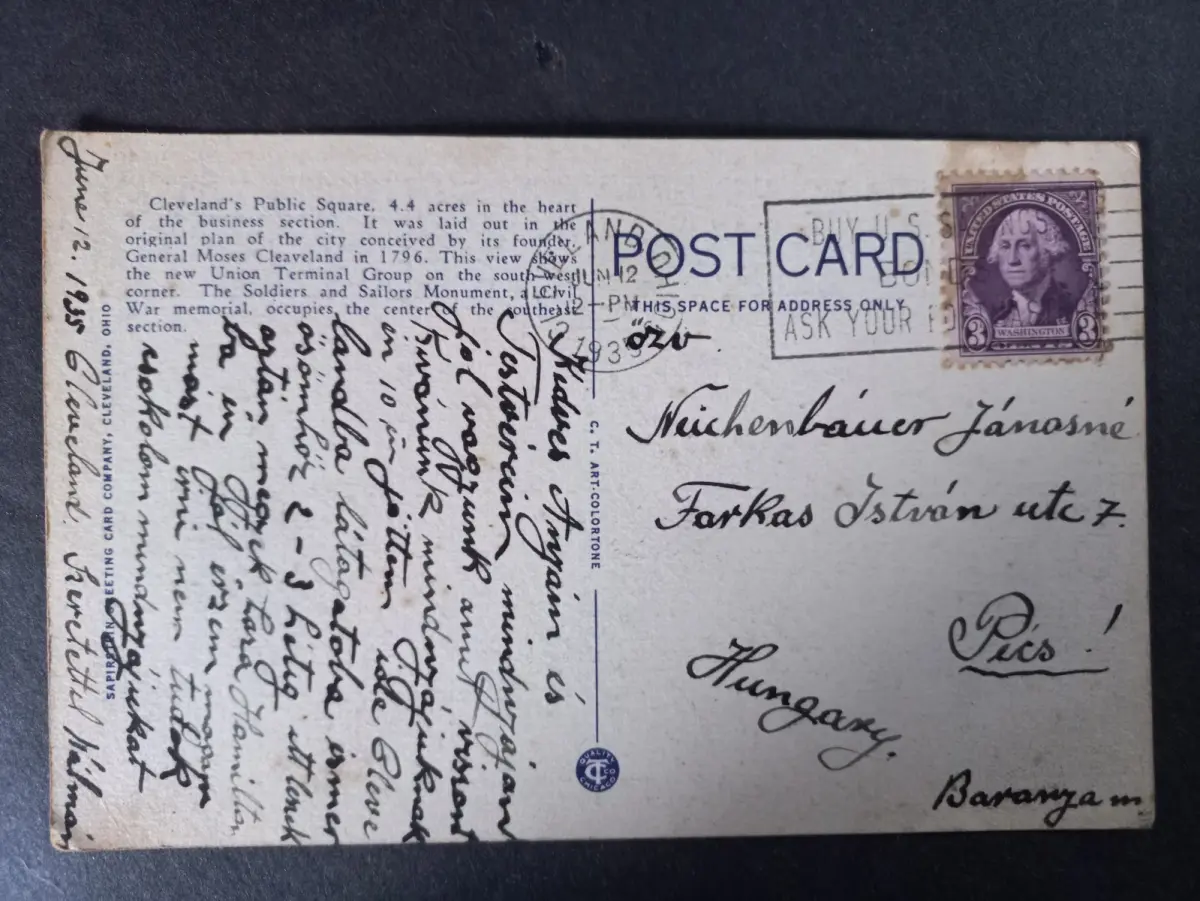 Cleveland's Public Square, 4.4 acres in the heart
of the business section. It was laid out in the
original plan of the city conceived by its founder,
General Moses Cleaveland in 1796. This view shows
the new Union Terminal Group on the south-west
corner. The Soldiers and Sailors Monument, a Civil
War memorial, occupies the center of the southeast
section.
POST CARD
THIS SPACE FOR ADDRESS ONLY
CLEVELAND, OHIO
JUN 12
12-PM
1935
BUY U.S. S
BOND
ASK YOUR PO
UNITED STATES POSTAGE
3 WASHINGTON 3
özv.
Neichenbáuer Jánosné
Farkas István utc 7.
Pécs!
Hungary.
Baranya m
C. T. ART-COLORTONE
QUALITY
CT CO
CHICAGO
SAPIRSTEIN GREETING CARD COMPANY, CLEVELAND, OHIO
June 12. 1935 Cleveland.
Kedves Anyám és
Testvéreim mindnyájan
Jól vagyunk amit viszont
Kivánunk mindnyájuknak
én 10 én jöttem ide Cleve
landba látogatoba
ösömhöz 2-3 hétig itt lenek
aztán megyek
ba én jól érzem magam
most irni nem tudok
csokolom mindnyájukat
Szeretettel Kálmán